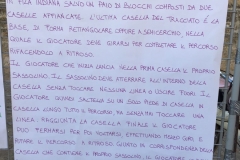 IN FILA INDIANA SALVO UN PAIO DI BLOCCHI COMPOSTI DA DUE
CASELLE AFFIANCATE. L'ULTIMA CASELLA DEL TRACCIATO È LA
BASE, DI FORMA RETTANGOLARE OPPURE A SEMICERCHIO, NELLA
QUALE IL GIOCATORE DEVE GIRARSI PER COMPLETARE IL PERCORSO
RIFACENDOLO A RITROSO.
IL GIOCATORE CHE INIZIA LANCIA NELLA PRIMA CASELLA IL PROPRIO
SASSOLINO. IL SASSOLINO DEVE ATTERRARE ALL'INTERNO DELLA
CASELLA SENZA TOCCARE NESSUNA LINEA O USCIRE FUORI. IL
GIOCATORE QUINDI SALTELLA SU UN SOLO PIEDE DI CASELLA IN
CASELLA LUNGO TUTTO IL PERCORSO MA SENZA MAI TOCCARE UNA
LINEA; RAGGIUNTA LA CASELLA FINALE IL GIOCATORE
PUÒ FERMARSI PER POI VOLTARSI, EFFETTUANDO MEZZO GIRO E
RIFARE IL PERCORSO A RITROSO GIUNTO IN CORRISPONDENZA DELLA
CASELLA CHE CONTIENE IL PROPRIO SASSOLINO, IL GIOCATORE